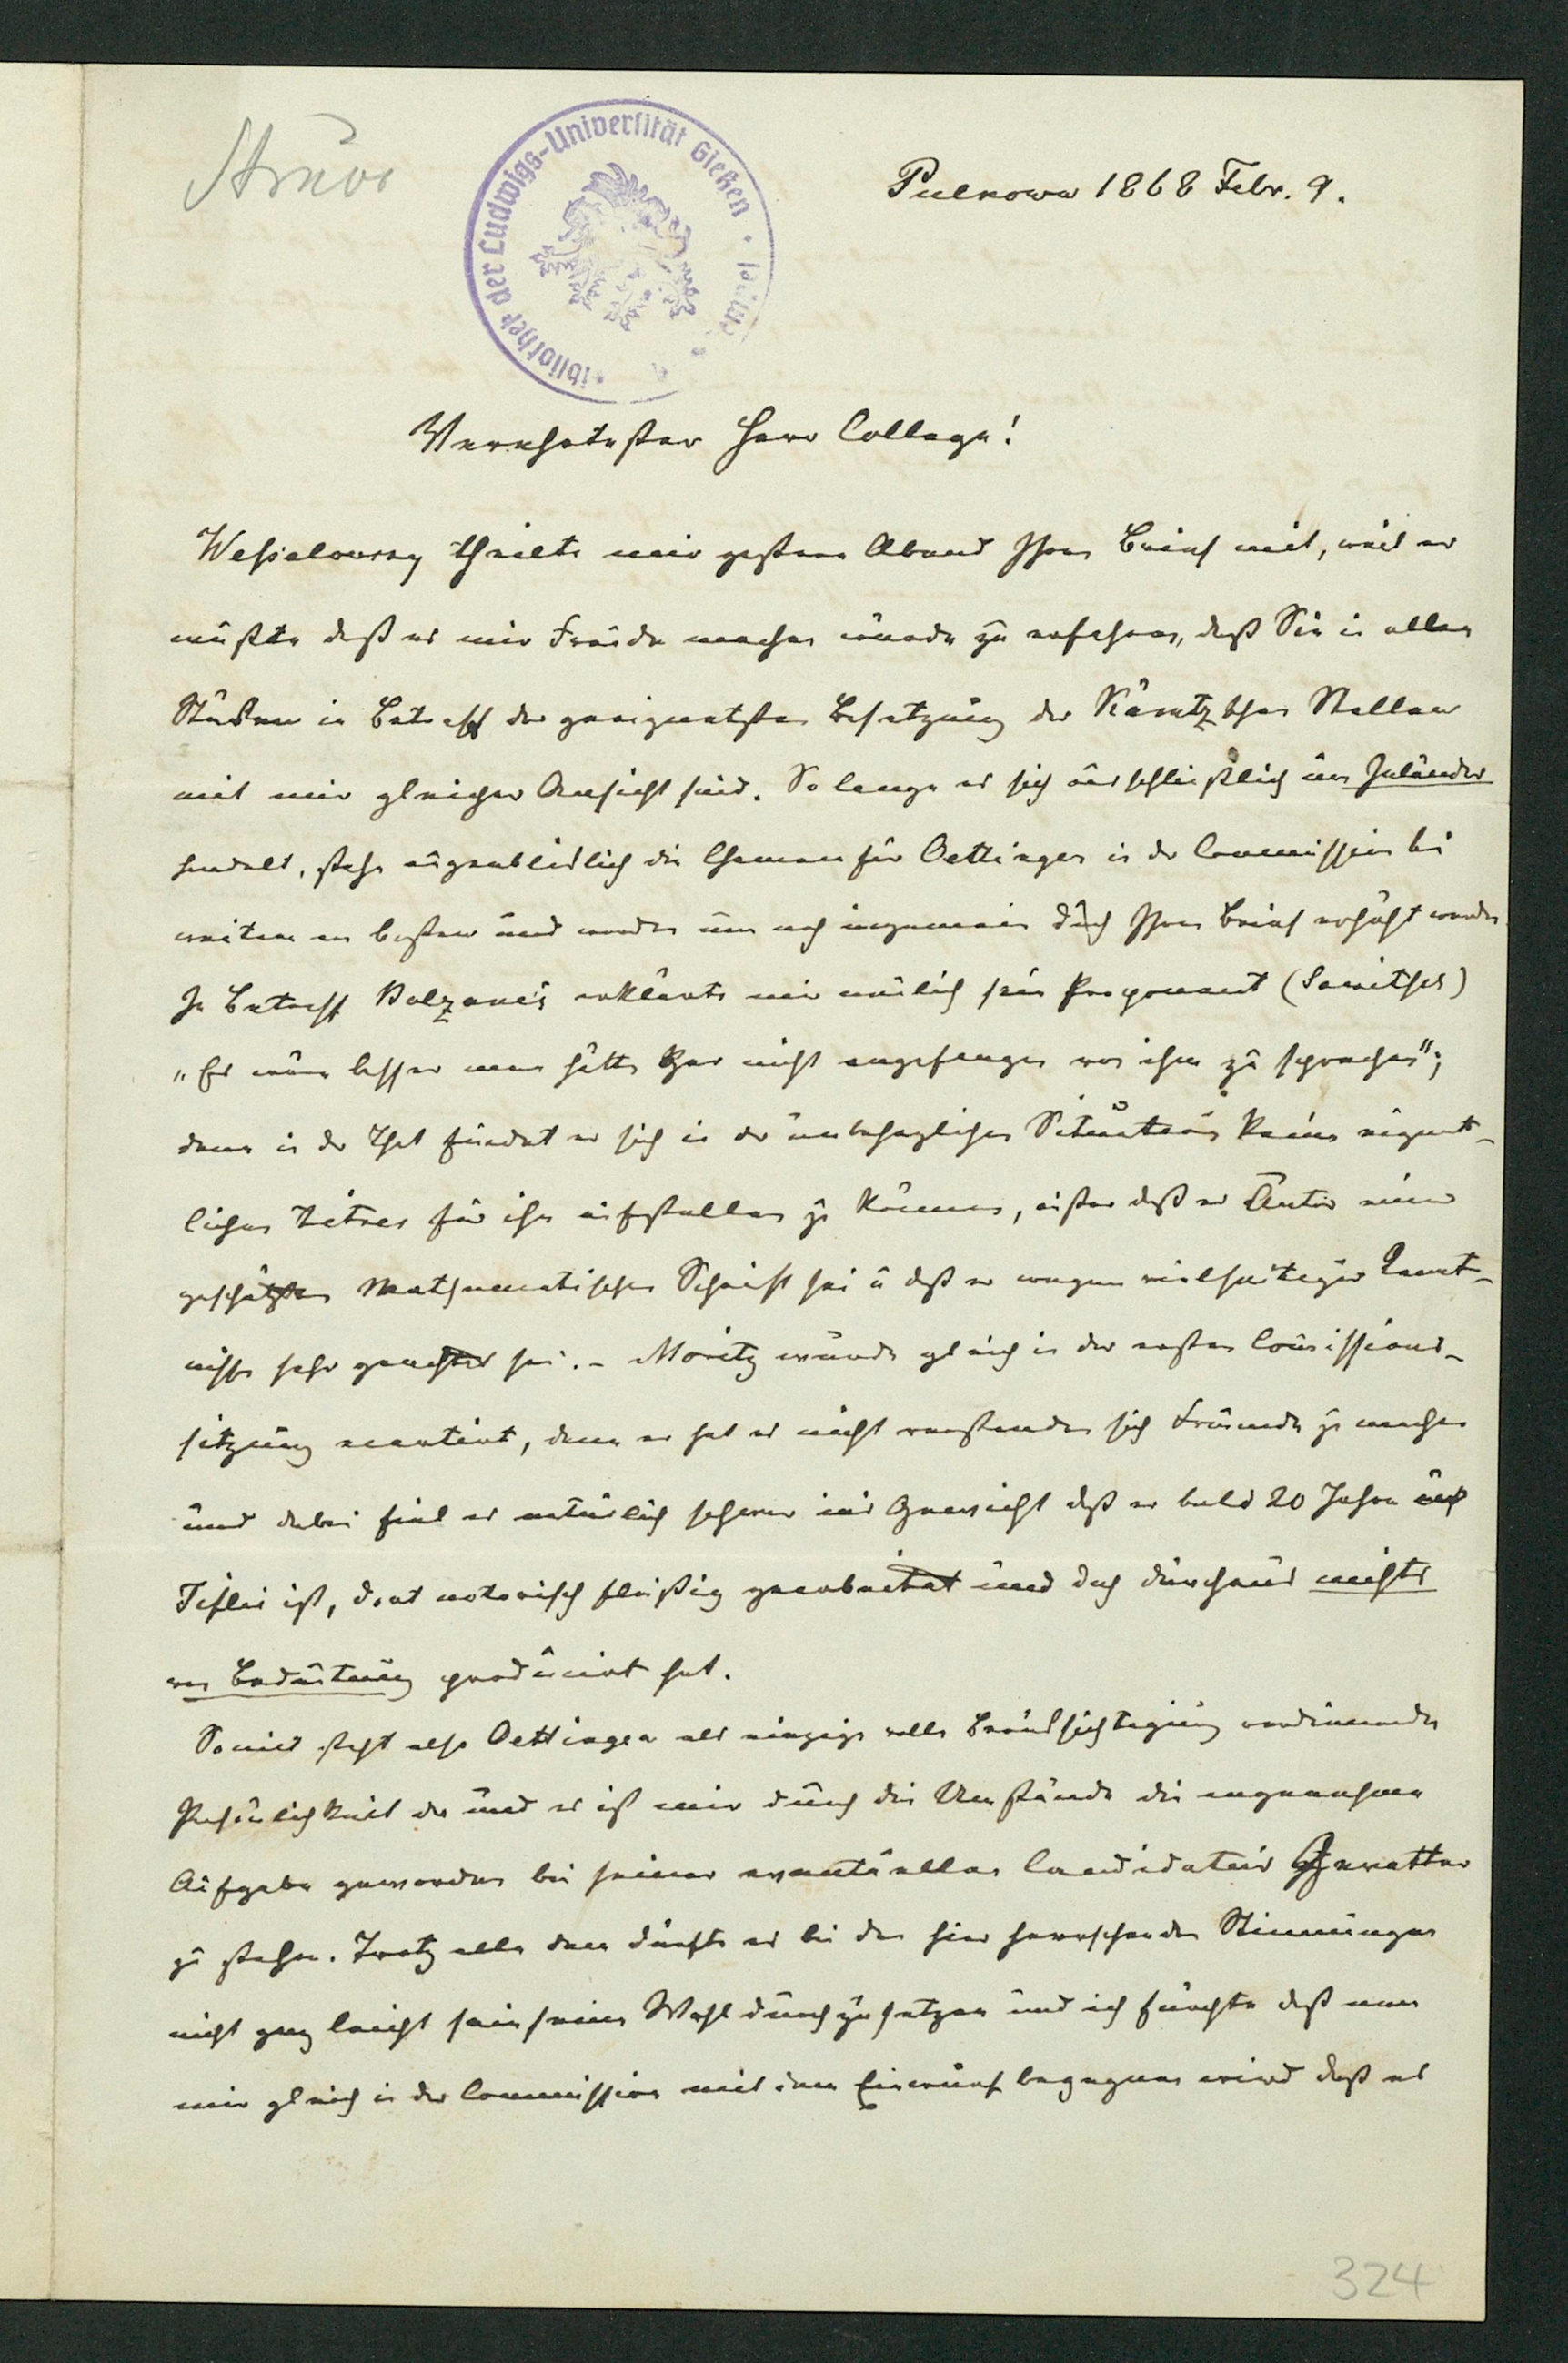 Struve
Bibliothek der Ludwigs-Universität Gießen
Pulkowa 1868 Febr. 9.
Verehrtester Herr College!
Wesselowsky theilte mir gestern Abend Ihren Brief mit, weil er
wußte daß es mir Freude machen würde zu erfahren, daß Sie in allen
Stücken in Betreff der geeignetsten Besetzung der Kämtzschen Stellen
mit mir gleicher Ansicht sind. So lange es sich ausschließlich um Inländer
handelt, stehn augenblicklich die Chancen für Oettingen in der Commission bei
weitem am besten und werden nun noch ungemein durch Ihren Brief erhöht werden
In Betreff Bolzani's erklärte mir neulich sein Proponent (Sawitsch)
"Es wäre besser man hätte gar nicht angefangen von ihm zu sprechen";
denn in der That findet er sich in der unbehaglichen Situation keine eigent-
lichen Titres für ihn aufstellen zu können, außer daß er Autor einer
geschätzten mathematischen Schrift sei u daß er wegen vielseitiger Kennt-
nisse sehr geachtet sei. - Moritz wurde gleich in der ersten Comissions-
sitzung ecartirt, denn er hat es nicht verstanden sich Freunde zu machen
und dabei fiel es natürlich schwer ins Gewicht daß er bald 20 Jahre in
Tiflis ist, dort notorisch fleißig gearbeitet und doch durchaus nichts
von Bedeutung producirt hat.
Somit steht also Oettingen als einzige volle Berücksichtigung verdienende
Persönlichkeit da und es ist mir durch die Umstände die angenehme
Aufgabe geworden bei seiner eventuellen Candidatur Gevatter
zu stehen. Trotz alle dem dürfte es bei den hier herrschenden Stimmungen
nicht ganz leicht sein seine Wahl durchzusetzen und ich fürchte daß man
mir gleich in der Commission mit dem Einwurf begegnen wird daß es
324